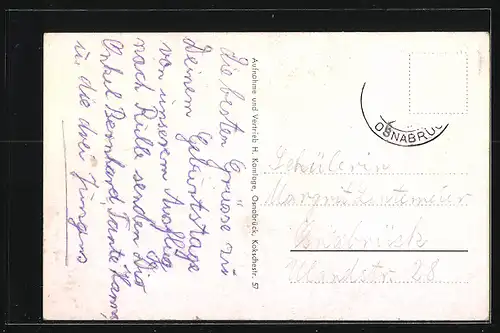 Die besten Grüsse zu
Deinem Geburtstage
von unserem Ausflug
nach Rulle senden Dir
Onkel Bernhard, Tante Hanna,
u. die drei Jungens
Aufnahme und Vertrieb H. Kamlage, Osnabrück, Kokschestr. 57
OSNABRÜC
Schülerin
Margret
Osnabrück
Uhlandstr. 28